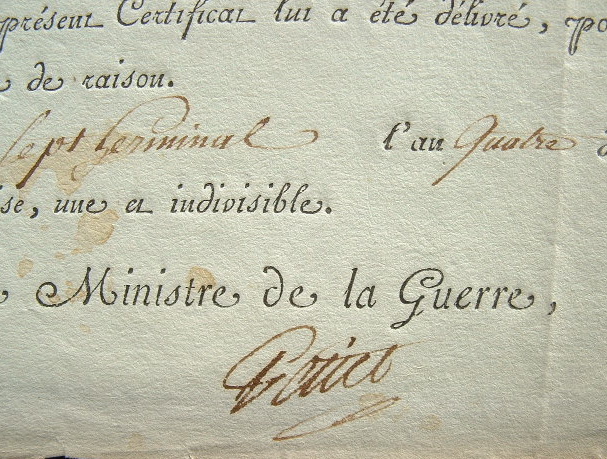 présent Certificat lui a été délivré, po
de raison.
Sept Germinal l'an Quatre d
se, une et indivisible.
Ministre de la Guerre,